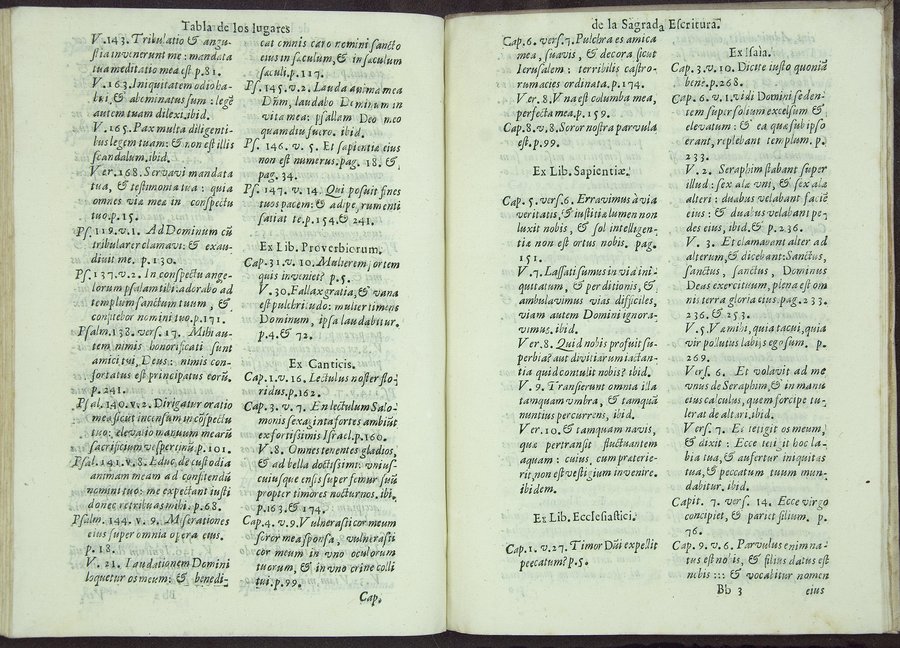 Tabla de los lugares
V.143. Tribulatio & angu-
stia invenerunt me: mandata
tua meditatio mea est p.81.
V.163. Iniquitatem odio ha-
bui, & abominatus sum: legẽ
autem tuam dilexi. ibid.
V.165. Pax multa diligenti-
bus legem tuam: & non est illis
scandalum. ibid.
Ver.168. Servavi mandata
tua, & testimonia tua: quia
omnes via mea in conspectu
tuo. p.15.
Ps. 119. v. 1. Ad Dominum cũ
tribularer clamavi: & exau-
divit me. p. 130.
Ps. 137. v. 2. In conspectu ange-
lorum psalam tibi: adorabo ad
templum sanctum tuum, &
confitebor nomini tuo. p.171.
Psalm. 138. vers. 17. Mihi au-
tem nimis honorificati sunt
amici tui, Deus: nimis con-
fortatus est principatus eorũ.
p. 241.
Psal. 140. v. 2. Dirigatur oratio
mea sicut incensum in cõspectu
tuo: elevatio manuum mearũ
sacrificium vespertinũ. p. 101.
Psal. 141. v. 8. Educ de custodia
animam meam ad confitendũ
nomini tuo: me expectant iusti
donec retribuas mihi. p. 68.
Psalm. 144. v. 9. Miserationes
eius super omnia opera eius.
p. 18.
V. 21. Laudationem Domini
loquetur os meum: & benedi-
cat omnis caro nomini sancto
eius in saculum, & in saculum
saculi. p. 117.
Ps. 145. v. 2. Lauda anima mea
Dñm, laudabo Dominum in
vita mea: psallam Deo meo
quamdiu fuero. ibid.
Ps. 146. v. 5. Et sapientia eius
non est numerus. pag. 18. &
pag. 34.
Ps. 147. v. 14. Qui posuit fines
tuos pacem: & adipe frumenti
satiat te. p.154. & 241.
Ex Lib. Proverbiorum.
Cap. 31. v. 10. Mulierem fortem
quis inveniet? p. 5.
V. 30. Fallax gratia, & vana
est pulchritudo: mulier timens
Dominum, ipsa laudabitur.
p.4. & 72.
Ex Canticis.
Cap. 1. v. 16. Lectulus noster flo-
ridus. p.162.
Cap. 3. v. 7. En lectulum Salo-
monis sexaginta fortes ambiũt
ex fortissimis Israel. p.160.
V. 8. Omnes tenentes gladios,
& ad bella doctissimi: unius-
cuiusque ensis super femur suũ
propter timores nocturnos. ibi.
p.163. & 174.
Cap. 4. v. 9. Vulnerasti cor meum
soror mea sponsa, vulnerasti
cor meum in uno oculorum
tuorum, & in uno crine colli
tui. p. 99.
Cap.
de la Sagrada Escritura.
Cap. 6. vers. 7. Pulchra es amica
mea, suavis, & decora sicut
Ierusalem: terribilis castro-
rum acies ordinata. p. 174.
Ver. 8. Vna est columba mea,
perfecta mea. p. 159.
Cap. 8. v. 8. Soror nostra parvula
est. p. 99.
Ex Lib. Sapientiæ.
Cap. 5. vers. 6. Erravimus à via
veritatis, & iustitiæ lumen non
luxit nobis, & sol intelligen-
tiæ non est ortus nobis. pag.
151.
V. 7. Lassati sumus in via ini-
quitatum, & perditionis, &
ambulavimus vias dificiles,
viam autem Domini ignora-
vimus. ibid.
Ver. 8. Quid nobis profuit su-
perbia? aut divitiarum iactan-
tia quid contulit nobis? ibid.
V. 9. Transierunt omnia illa
tamquam vmbra, & tamquã
nuntius percurrens, ibid.
Ver. 10. & tamquam navis,
quæ pertransit fluctuantem
aquam: cuius, cum præterie-
rit, non est vestigium invenire.
ibidem.
Ex Lib. Ecclesiastici.
Cap. 1. v. 27. Timor Dñi expellit
peccatum? p. 5.
Ex Isaia.
Cap. 3. v. 10. Dicite iusto quoniã
bene. p.268.
Cap. 6. v. 1. vidi Domini seden-
tem super solium excelsum &
elevatum: & ea quæ sub ipso
erant, replebant templum. p.
233.
V. 2. Seraphim stabant super
illud: sex alæ vni, & sex alæ
alteri: duabus velabant faciẽ
eius: & duabus velabant pe-
des eius, ibid. & p. 236.
V. 3. Et clamabant alter ad
alterum, & dicebant: Sanctus,
sanctus, sanctus, Dominus
Deus exercituum, plena est om
nis terra gloria eius. pag. 233.
236. & 253.
V. 5. Væ mihi, quia tacui, quia
vir pollutus labijs ego sum. p.
269.
Vers. 6. Et volavit ad me
vnus de Seraphim, & in manu
eius calculus, quem forcipe tu-
lerat de altari. ibid.
Vers. 7. Et tetigit os meum,
& dixit: Ecce tetigit hoc la-
bia tua, & aufertur iniquitas
tua, & peccatum tuum mun-
dabitur. ibid.
Capit. 7. vers. 14. Ecce virgo
concipiet, & pariet filium. p.
76.
Cap. 9. v. 6. Parvulus enim na-
tus est nobis, & filius datus est
nobis ::: & vocabitur nomen
Bb 3
eius